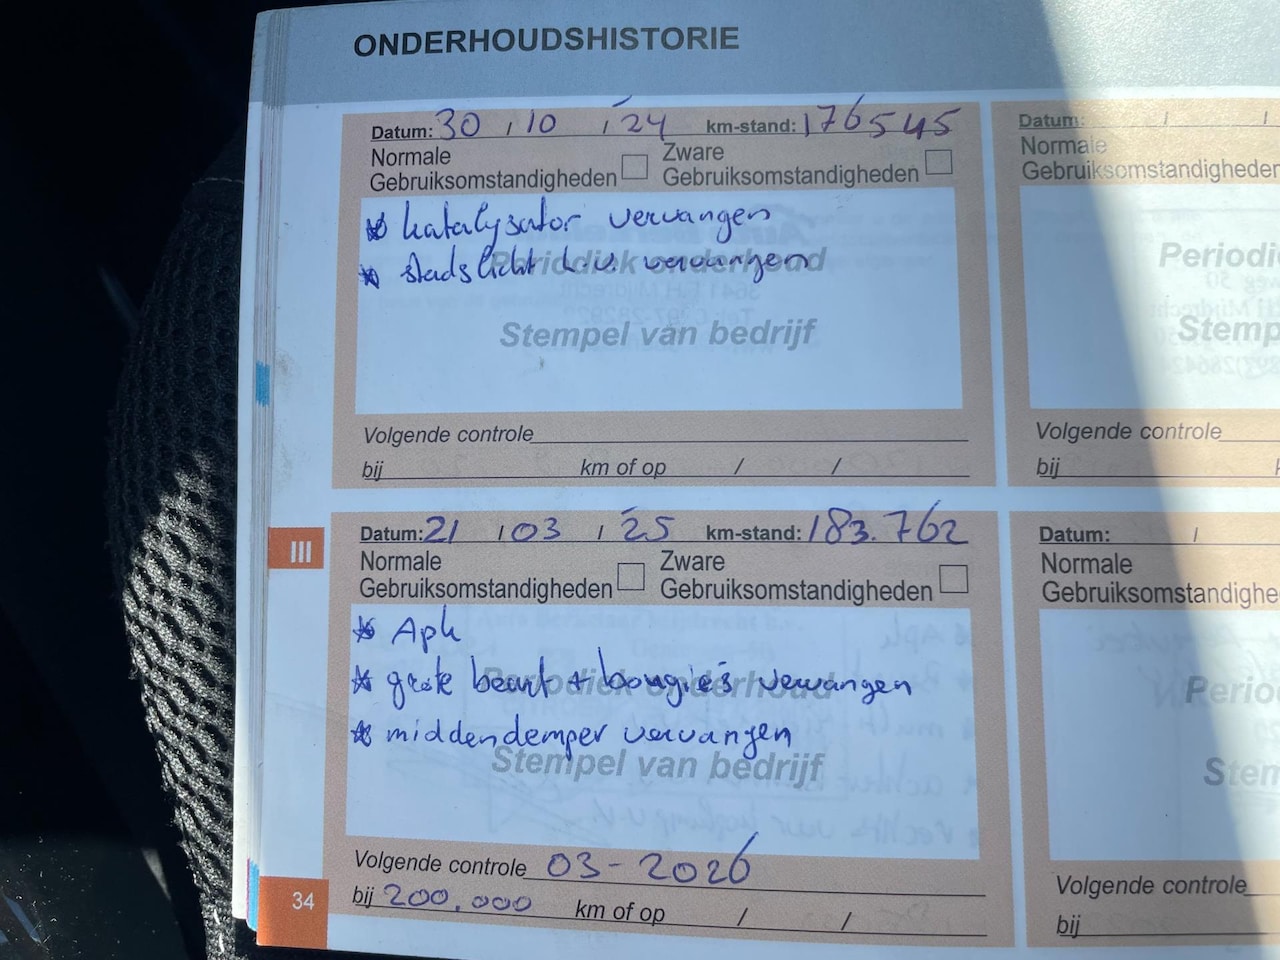 ONDERHOUDSHISTORIE
Datum: 30 / 10 / '24 km-stand: 176545
Normale Gebruiksomstandigheden
Zware Gebruiksomstandigheden
* katalysator vervangen
* stadslicht l.v. vervangen
Periodiek onderhoud
Stempel van bedrijf
Volgende controle
bij km of op / /
Datum: / /
Normale
Gebruiksomstandigheden
Periodi
Stemp
Volgende controle
bij k
III
Datum: 21 / 03 / '25 km-stand: 183.762
Normale Gebruiksomstandigheden
Zware Gebruiksomstandigheden
* Apk
* grote beurt + bougie's vervangen
* middendemper vervangen
Periodiek onderhoud
Stempel van bedrijf
Volgende controle 03-2026
bij 200.000 km of op / /
Datum: /
Normale
Gebruiksomstandighe
Perio
Stem
Volgende controle
bij
34